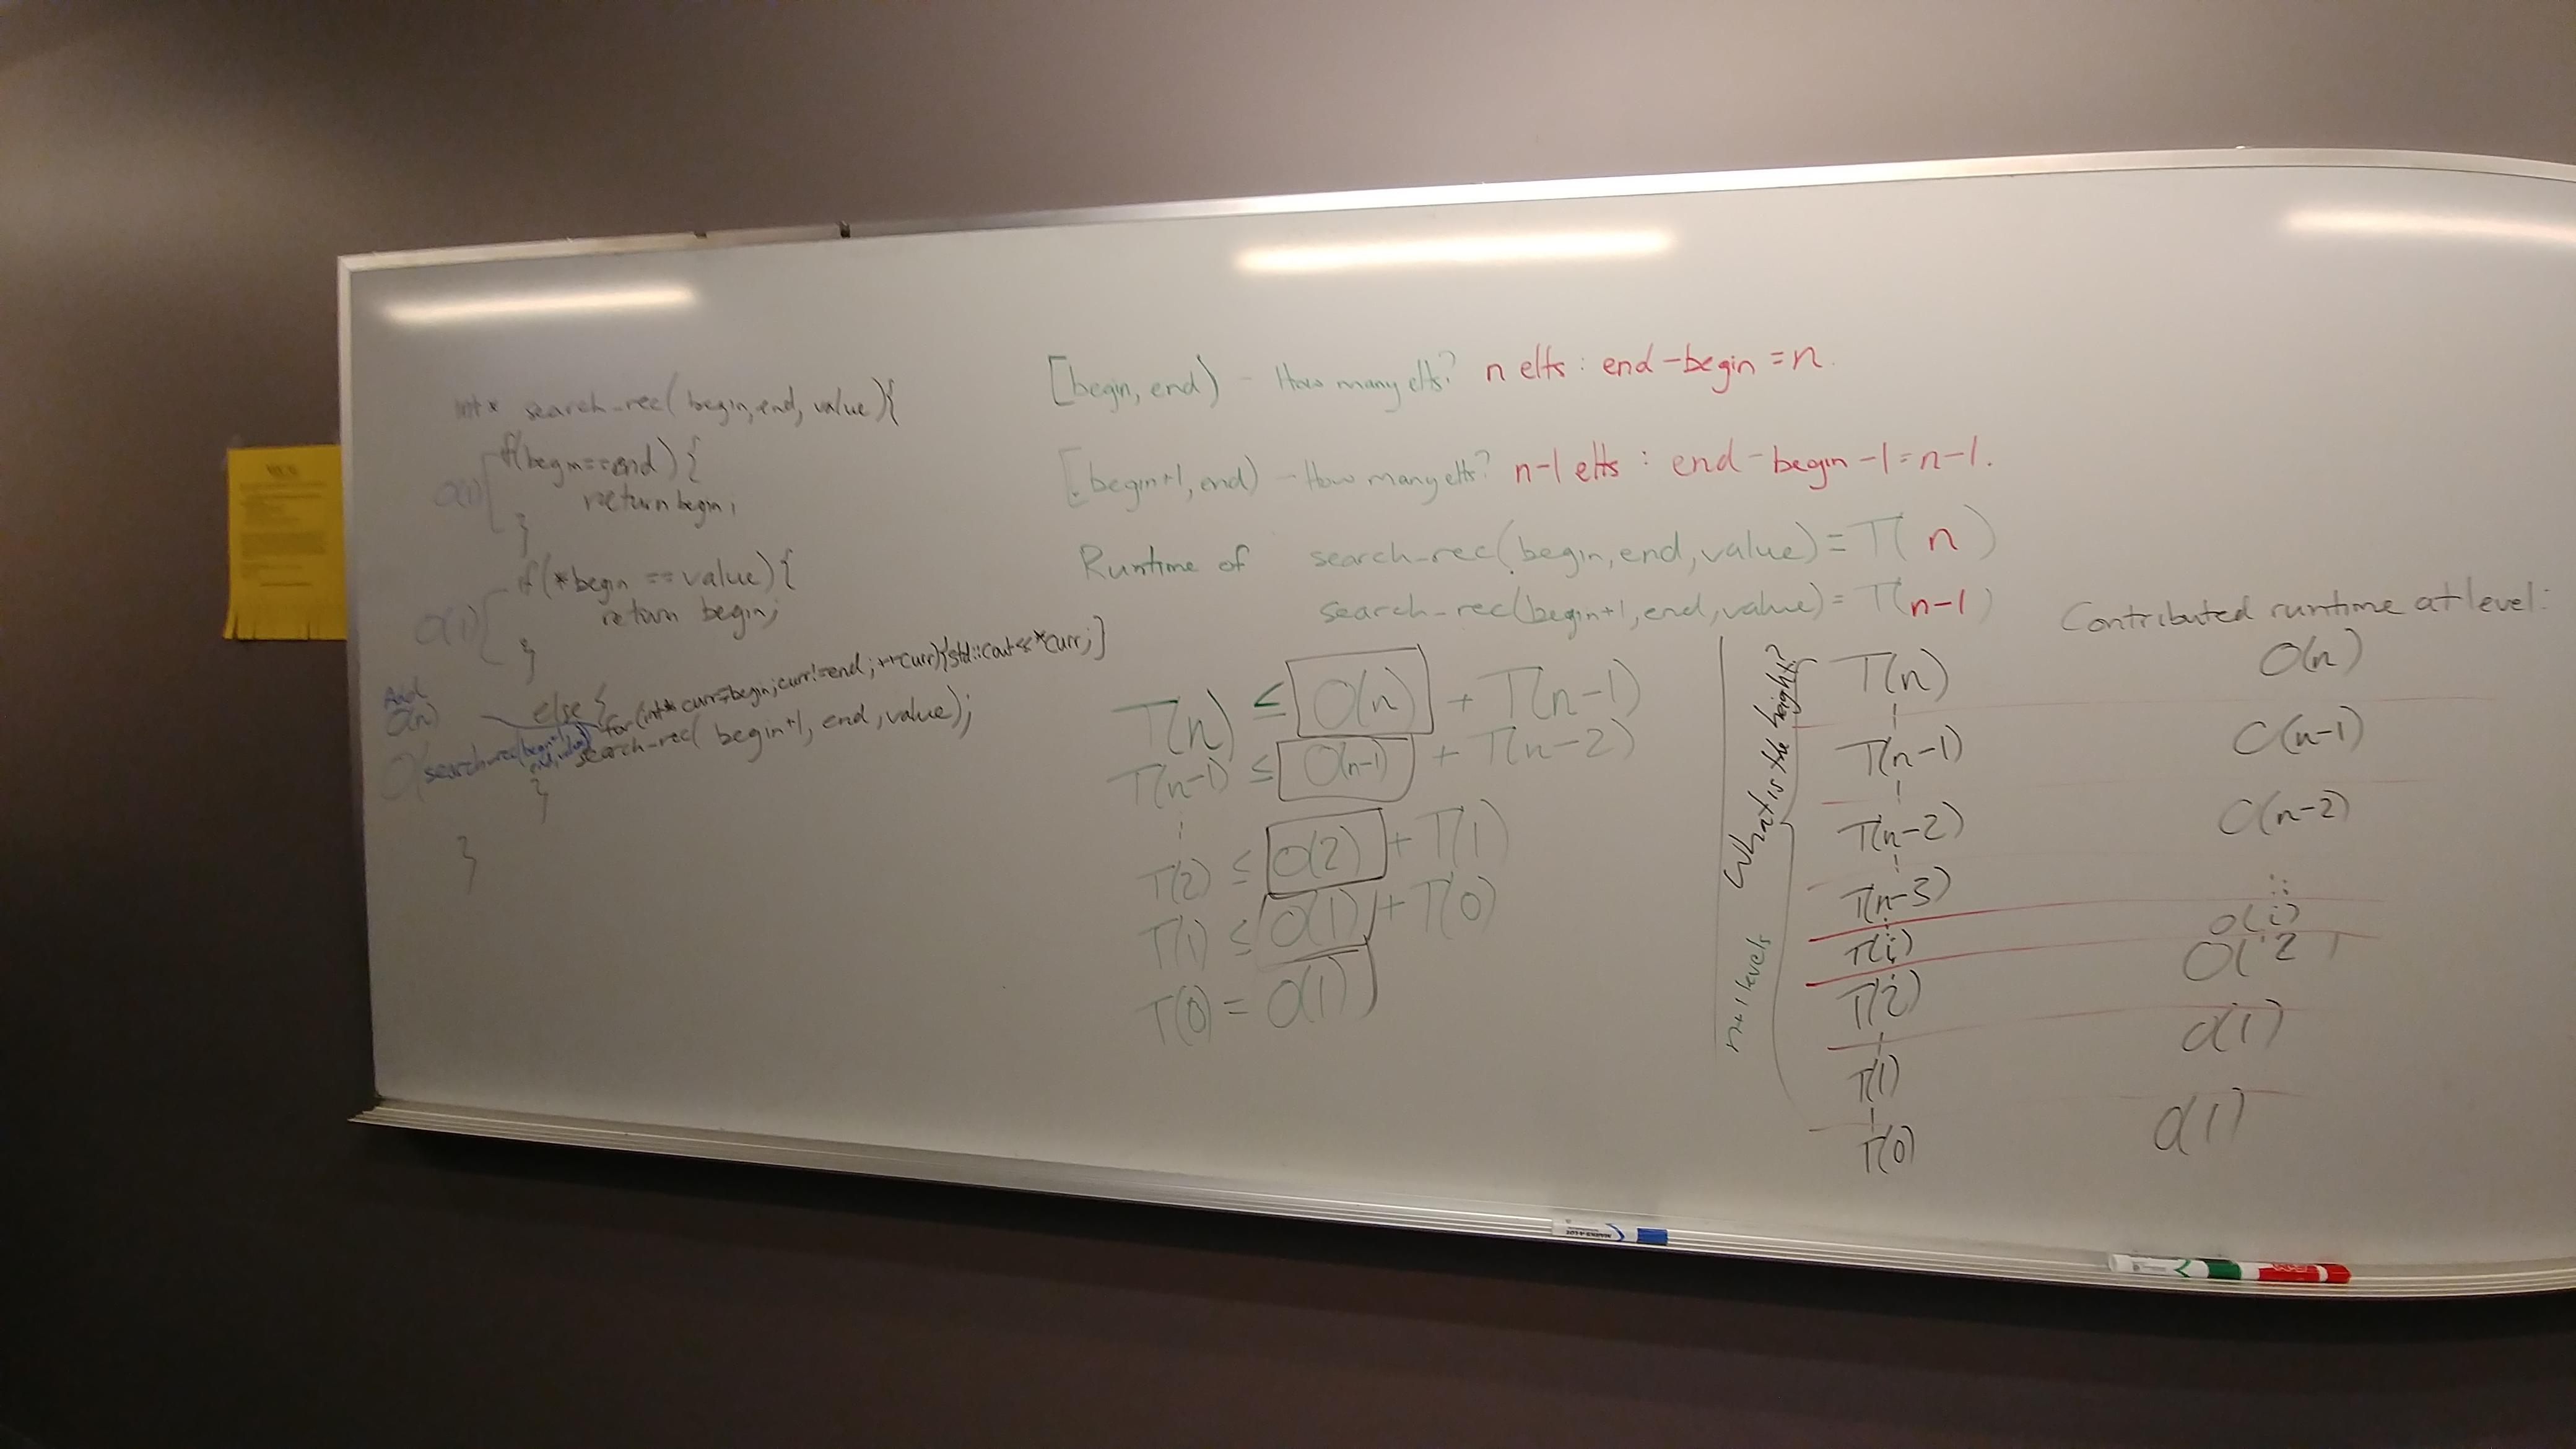 int* search_rec( begin, end, value){
if(begin==end) {
return begin;
}
O(1)
if(*begin == value){
return begin;
}
O(1)
Add
O(n)
else { for(int* curr=begin; curr!=end; ++curr){std::cout<<*curr;}
search_rec( begin+1, end, value);
O(search_rec(begin+1,
end, value)
}
}
[begin, end) - How many elts? n elts : end-begin = n.
[begin+1, end) - How many elts? n-1 elts : end-begin-1=n-1.
Runtime of search_rec(begin, end, value) = T( n )
search_rec(begin+1, end, value) = T(n-1)
T(n) ≤ O(n) + T(n-1)
T(n-1) ≤ O(n-1) + T(n-2)
⋮
T(2) ≤ O(2) + T(1)
T(1) ≤ O(1) + T(0)
T(0) = O(1)
What is the height?
n+1 levels
Contributed runtime at level:
T(n) O(n)
T(n-1) O(n-1)
T(n-2) O(n-2)
T(n-3) ⋮
T(i) O(i)
T(2) O(2)
T(1) O(1)
T(0) O(1)